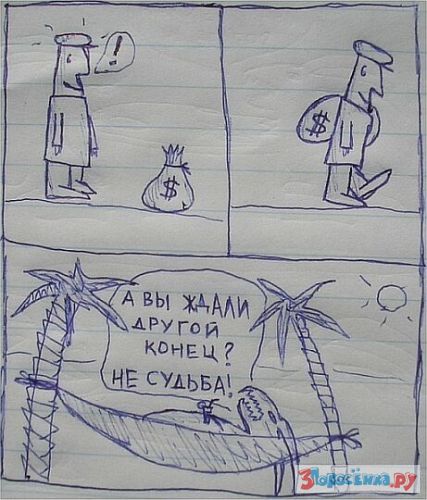 !
$
$
А ВЫ ЖДАЛИ
ДРУГОЙ
КОНЕЦ?
НЕ СУДЬБА!
3Поросёнка.РУ